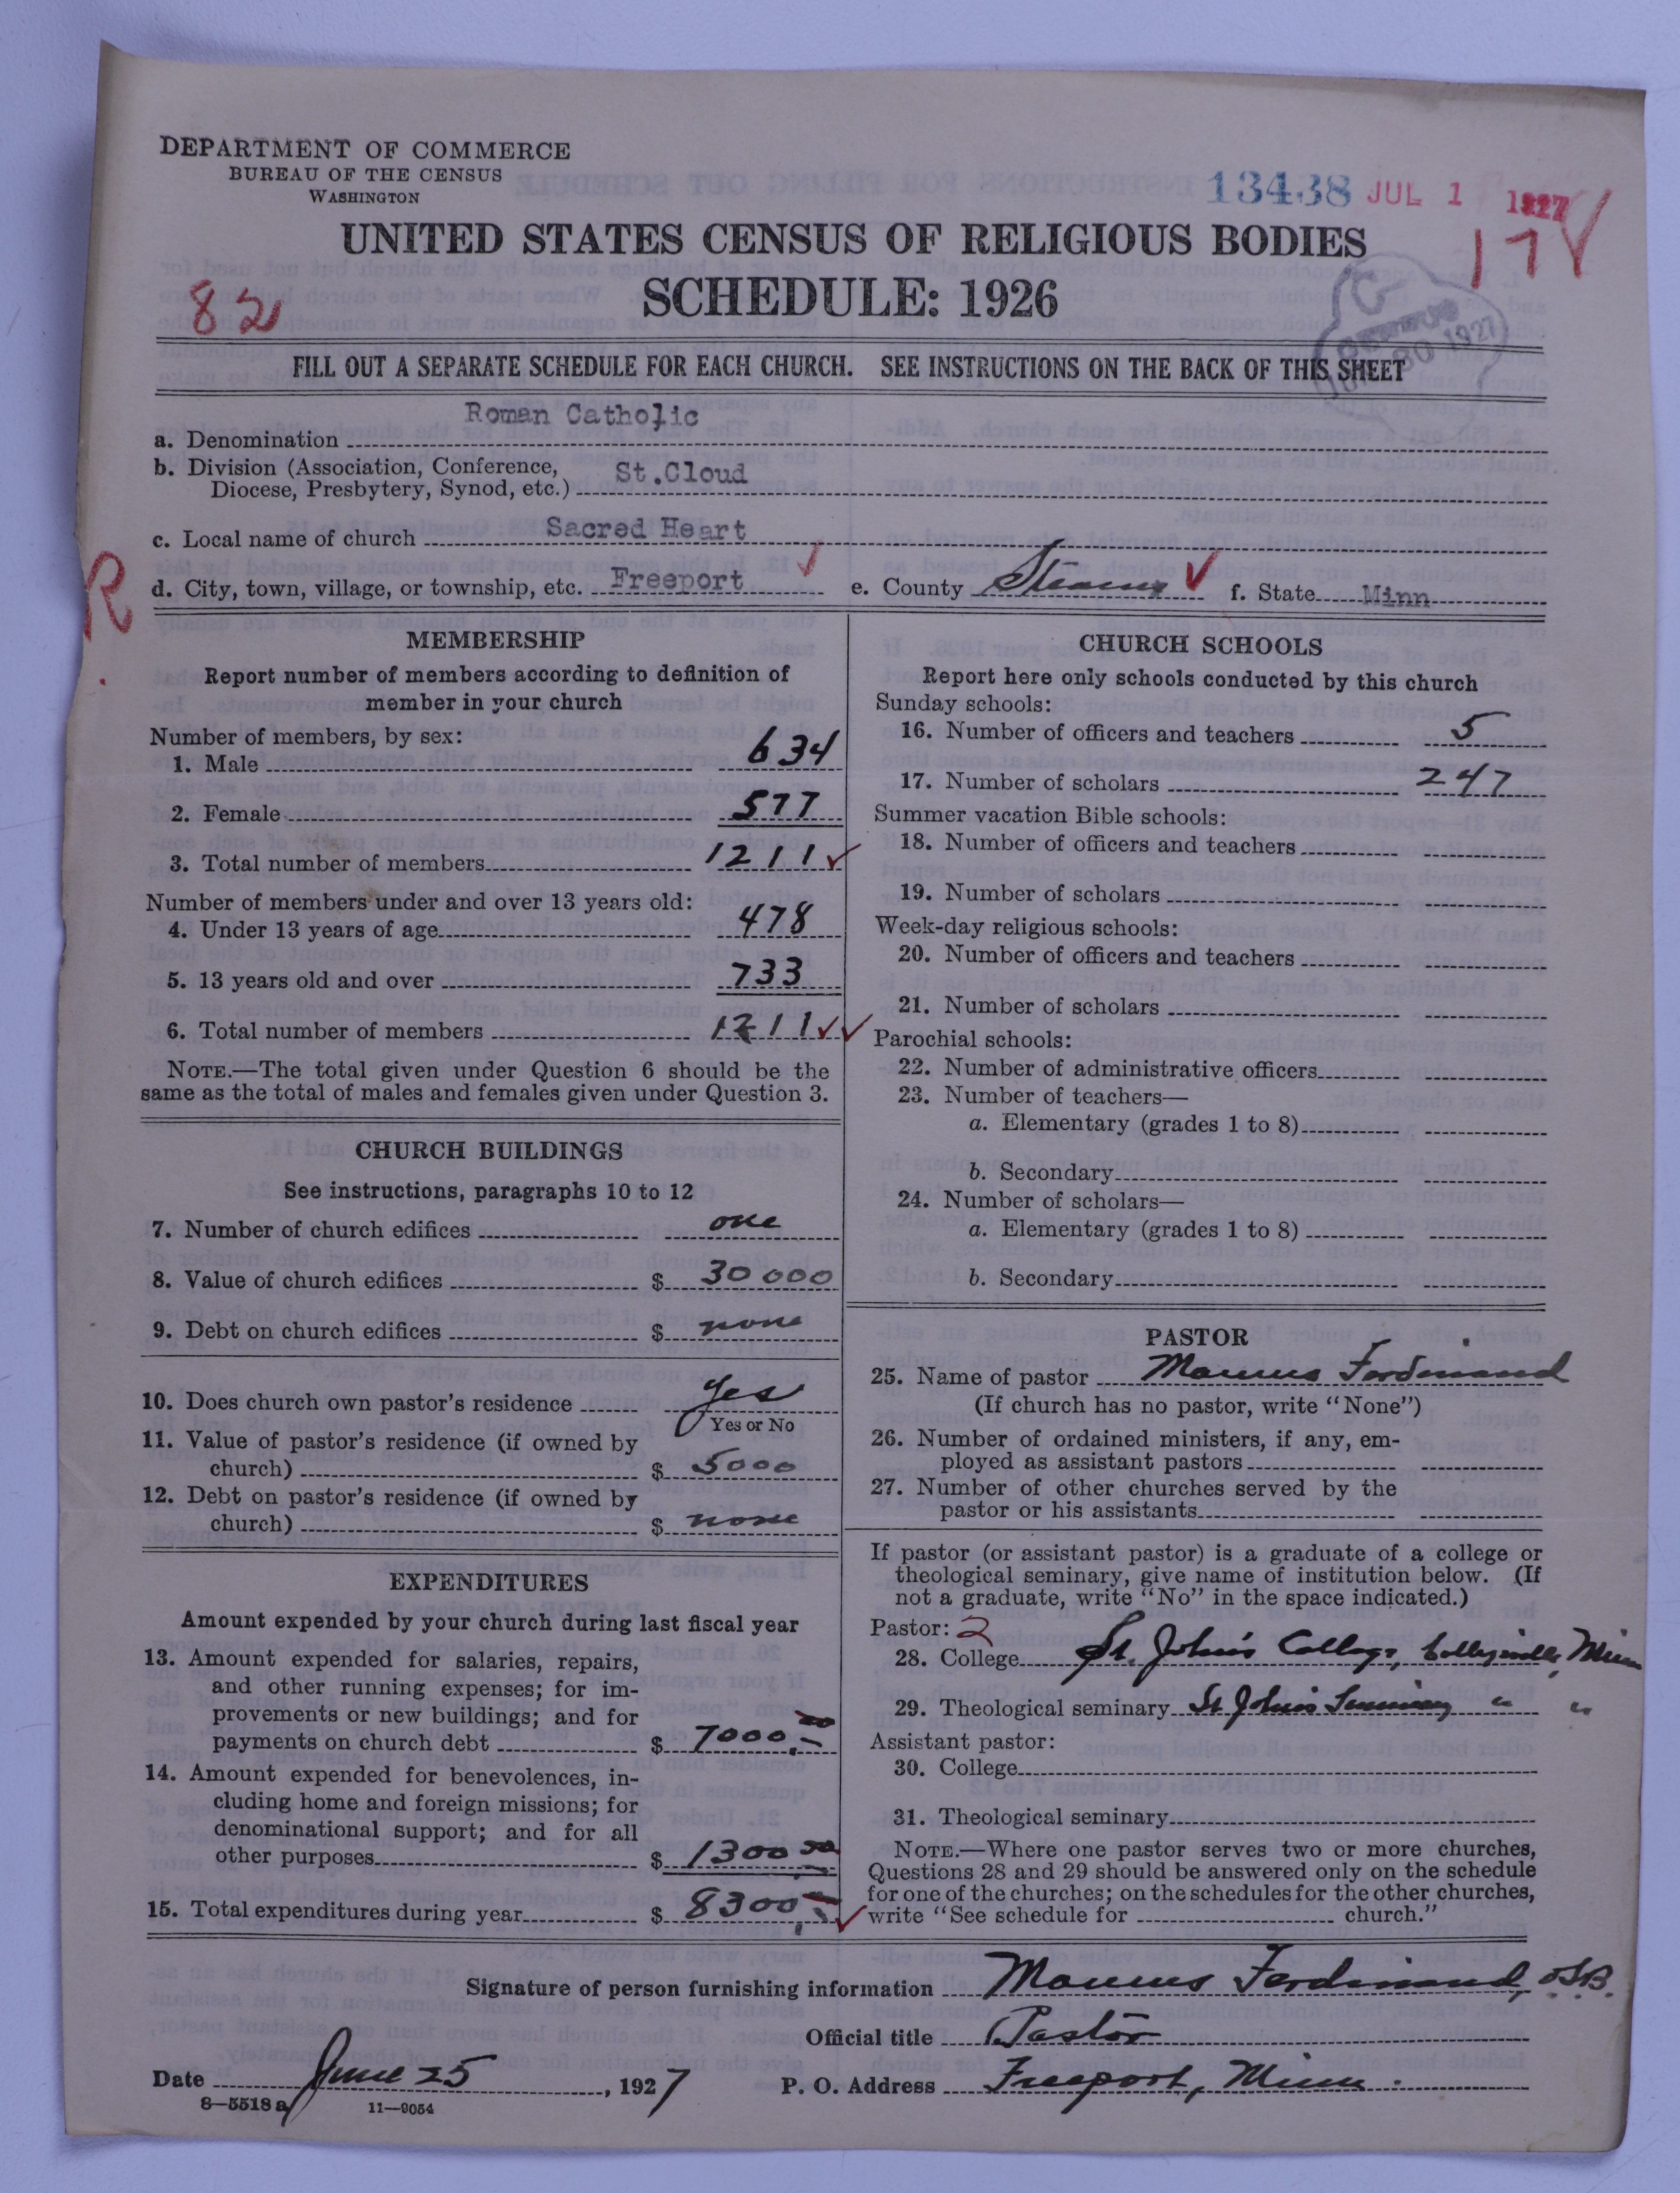 DEPARTMENT OF COMMERCE
BUREAU OF THE CENSUS
WASHINGTON
13438 JUL 1 1927
UNITED STATES CENSUS OF RELIGIOUS BODIES
17
SCHEDULE: 1926
82
FILL OUT A SEPARATE SCHEDULE FOR EACH CHURCH. SEE INSTRUCTIONS ON THE BACK OF THIS SHEET
a. Denomination Roman Catholic
b. Division (Association, Conference,
Diocese, Presbytery, Synod, etc.) St.Cloud
c. Local name of church Sacred Heart
R
d. City, town, village, or township, etc. Freeport e. County Stearns f. State Minn
MEMBERSHIP
Report number of members according to definition of
member in your church
Number of members, by sex:
1. Male 634
2. Female 577
3. Total number of members 1211
Number of members under and over 13 years old:
4. Under 13 years of age 478
5. 13 years old and over 733
6. Total number of members 1211
NOTE.—The total given under Question 6 should be the
same as the total of males and females given under Question 3.
CHURCH BUILDINGS
See instructions, paragraphs 10 to 12
7. Number of church edifices one
8. Value of church edifices $ 30000
9. Debt on church edifices $ none
10. Does church own pastor's residence yes
Yes or No
11. Value of pastor's residence (if owned by
church) $ 5000
12. Debt on pastor's residence (if owned by
church) $ none
EXPENDITURES
Amount expended by your church during last fiscal year
13. Amount expended for salaries, repairs,
and other running expenses; for im-
provements or new buildings; and for
payments on church debt $ 7000.00
14. Amount expended for benevolences, in-
cluding home and foreign missions; for
denominational support; and for all
other purposes $ 1300.00
15. Total expenditures during year $ 8300
CHURCH SCHOOLS
Report here only schools conducted by this church
Sunday schools:
16. Number of officers and teachers 5
17. Number of scholars 247
Summer vacation Bible schools:
18. Number of officers and teachers
19. Number of scholars
Week-day religious schools:
20. Number of officers and teachers
21. Number of scholars
Parochial schools:
22. Number of administrative officers
23. Number of teachers—
a. Elementary (grades 1 to 8)
b. Secondary
24. Number of scholars—
a. Elementary (grades 1 to 8)
b. Secondary
PASTOR
25. Name of pastor Maurus Ferdinand
(If church has no pastor, write "None")
26. Number of ordained ministers, if any, em-
ployed as assistant pastors
27. Number of other churches served by the
pastor or his assistants
If pastor (or assistant pastor) is a graduate of a college or
theological seminary, give name of institution below. (If
not a graduate, write "No" in the space indicated.)
Pastor: 2
28. College St. John's College, Collegeville, Minn
29. Theological seminary St John's Seminary " "
Assistant pastor:
30. College
31. Theological seminary
NOTE.—Where one pastor serves two or more churches,
Questions 28 and 29 should be answered only on the schedule
for one of the churches; on the schedules for the other churches,
write "See schedule for church."
Signature of person furnishing information Maurus Ferdinand, O.S.B.
Official title Pastor
Date June 25, 1927 P. O. Address Freeport, Minn.
8—5518 a 11—9054